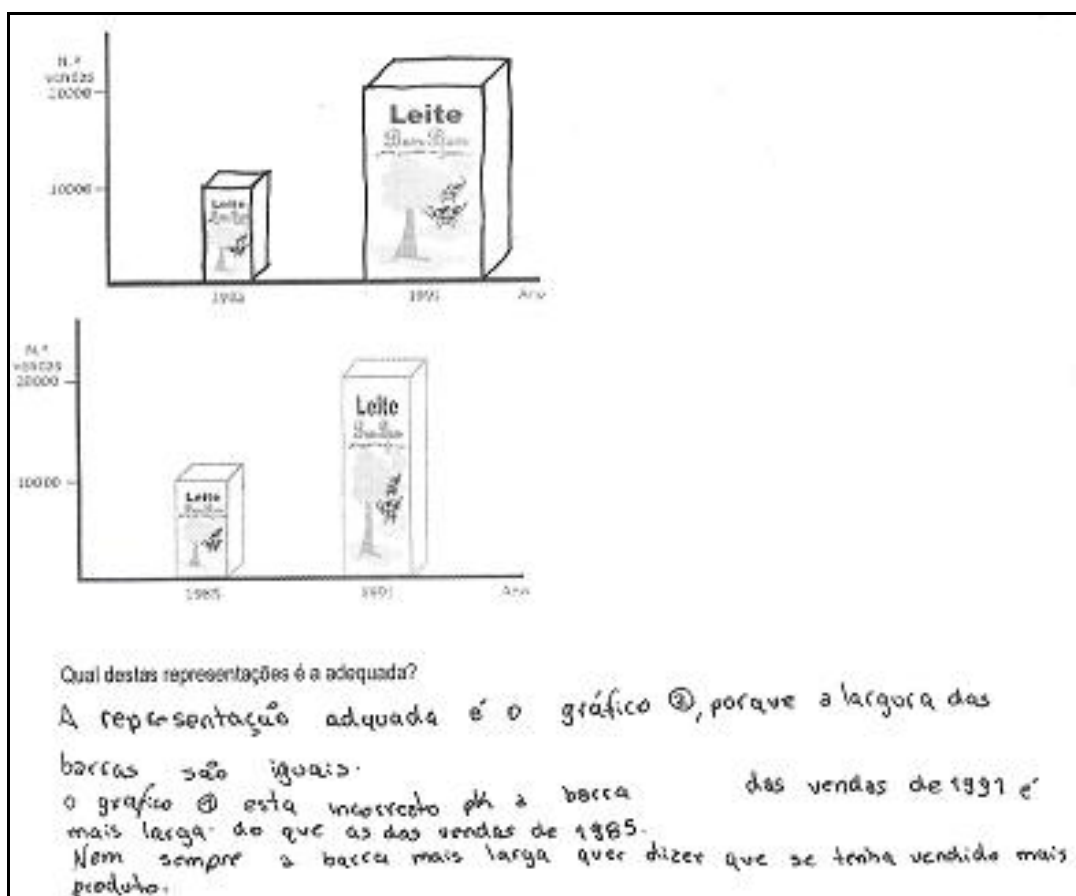 N.º
vendas
20000
Leite
Bom Bom
10000
Leite
Bom Bom
1985
1991
Ano
N.º
vendas
20000
Leite
Bom Bom
10000
Leite
Bom Bom
1985
1991
Ano
Qual destas representações é a adequada?
A representação adquada é o gráfico ②, porque a largura das
barras são iguais.
O grafico ① esta incorrecto pk a barra das vendas de 1991 é
mais larga do que as das vendas de 1985.
Nem sempre a barra mais larga quer dizer que se tenha vendido mais
produto.